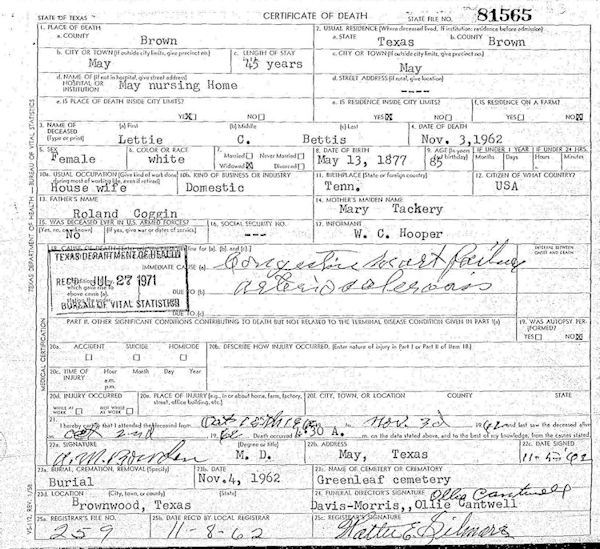 STATE OF TEXAS CERTIFICATE OF DEATH STATE FILE NO. 81565
1. PLACE OF DEATH 2. USUAL RESIDENCE (Where deceased lived. If institution: residence before admission)
a. COUNTY Brown a. STATE Texas b. COUNTY Brown
b. CITY OR TOWN (If outside city limits, give precinct no.) c. LENGTH OF STAY c. CITY OR TOWN (If outside city limits, give precinct no.)
May 45 years May
d. NAME OF (If not in hospital, give street address) d. STREET ADDRESS (If rural, give location)
HOSPITAL OR INSTITUTION May nursing Home ----
e. IS PLACE OF DEATH INSIDE CITY LIMITS? e. IS RESIDENCE INSIDE CITY LIMITS? f. IS RESIDENCE ON A FARM?
YES X NO YES X NO YES NO X
3. NAME OF DECEASED (a) First (b) Middle (c) Last 4. DATE OF DEATH
(Type or print) Lettie C. Bettis Nov. 3, 1962
5. SEX 6. COLOR OR RACE 7. Married Never Married 8. DATE OF BIRTH 9. AGE (In years last birthday) IF UNDER 1 YEAR IF UNDER 24 HRS.
Female white Widowed X Divorced May 13, 1877 85 Months Days Hours Minutes
10a. USUAL OCCUPATION (Give kind of work done during most of working life, even if retired) 10b. KIND OF BUSINESS OR INDUSTRY 11. BIRTHPLACE (State or foreign country) 12. CITIZEN OF WHAT COUNTRY?
House wife Domestic Tenn. USA
13. FATHER'S NAME 14. MOTHER'S MAIDEN NAME
Roland Coggin Mary Tackery
15. WAS DECEASED EVER IN U.S. ARMED FORCES? 16. SOCIAL SECURITY NO. 17. INFORMANT
(Yes, no, or unknown) (If yes, give war or dates of service)
No --- W. C. Hooper
18. CAUSE OF DEATH line for (a), (b), and (c).] INTERVAL BETWEEN ONSET AND DEATH
TEXAS DEPARTMENT OF HEALTH
REC'D JUL 27 1971
BUREAU OF VITAL STATISTICS
IMMEDIATE CAUSE (a) Congestive heart failure
DUE TO (b) arteriosclerosis
DUE TO (c)
PART II. OTHER SIGNIFICANT CONDITIONS CONTRIBUTING TO DEATH BUT NOT RELATED TO THE TERMINAL DISEASE CONDITION GIVEN IN PART I(a) 19. WAS AUTOPSY PERFORMED?
YES NO X
20a. ACCIDENT SUICIDE HOMICIDE 20b. DESCRIBE HOW INJURY OCCURRED. (Enter nature of injury in Part I or Part II of item 18.)
20c. TIME OF INJURY Hour Month Day Year
a.m.
p.m.
20d. INJURY OCCURRED 20e. PLACE OF INJURY (e.g., in or about home, farm, factory, street, office building, etc.) 20f. CITY, TOWN, OR LOCATION COUNTY STATE
WHILE AT WORK NOT WHILE AT WORK
21. I hereby certify that I attended the deceased from Oct to Nov. 3d 1962 and last saw the deceased alive
on 2nd 1962 Death occurred at 30 A. m. on the date stated above, and to the best of my knowledge, from the causes stated.
22a. SIGNATURE (Degree or title) 22b. ADDRESS 22c. DATE SIGNED
A. M. Bowden M. D. May, Texas 11-5-62
23a. BURIAL, CREMATION, REMOVAL (Specify) 23b. DATE 23c. NAME OF CEMETERY OR CREMATORY
Burial Nov. 4, 1962 Greenleaf cemetery
23d. LOCATION (City, town, or county) (State) 24. FUNERAL DIRECTOR'S SIGNATURE Ollie Cantwell
Brownwood, Texas Davis-Morris,, Ollie Cantwell
25a. REGISTRAR'S FILE NO. 25b. DATE REC'D BY LOCAL REGISTRAR 25c. REGISTRAR'S SIGNATURE
259 11-8-62 Walter E. Gilmore
TEXAS DEPARTMENT OF HEALTH — BUREAU OF VITAL STATISTICS
MEDICAL CERTIFICATION
VS-112, REV. 1/58